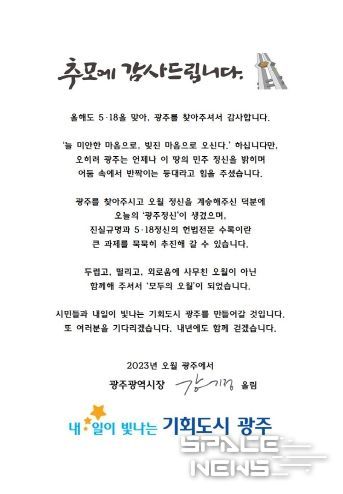 추모에 감사드립니다.
올해도 5·18을 맞아, 광주를 찾아주셔서 감사합니다.
'늘 미안한 마음으로, 빚진 마음으로 오신다.' 하십니다만,
오히려 광주는 언제나 이 땅의 민주 정신을 밝히며
어둠 속에서 반짝이는 등대라고 힘을 주셨습니다.
광주를 찾아주시고 오월 정신을 계승해주신 덕분에
오늘의 '광주정신'이 생겼으며,
진실규명과 5·18정신의 헌법전문 수록이란
큰 과제를 묵묵히 추진해 갈 수 있습니다.
두렵고, 떨리고, 외로움에 사무친 오월이 아닌
함께해 주셔서 '모두의 오월'이 되었습니다.
시민들과 내일이 빛나는 기회도시 광주를 만들어갈 것입니다.
또 여러분을 기다리겠습니다. 내년에도 함께 걷겠습니다.
2023년 오월 광주에서
광주광역시장 강기정 올림
내☆일이 빛나는 기회도시 광주
SPACE
NEWS